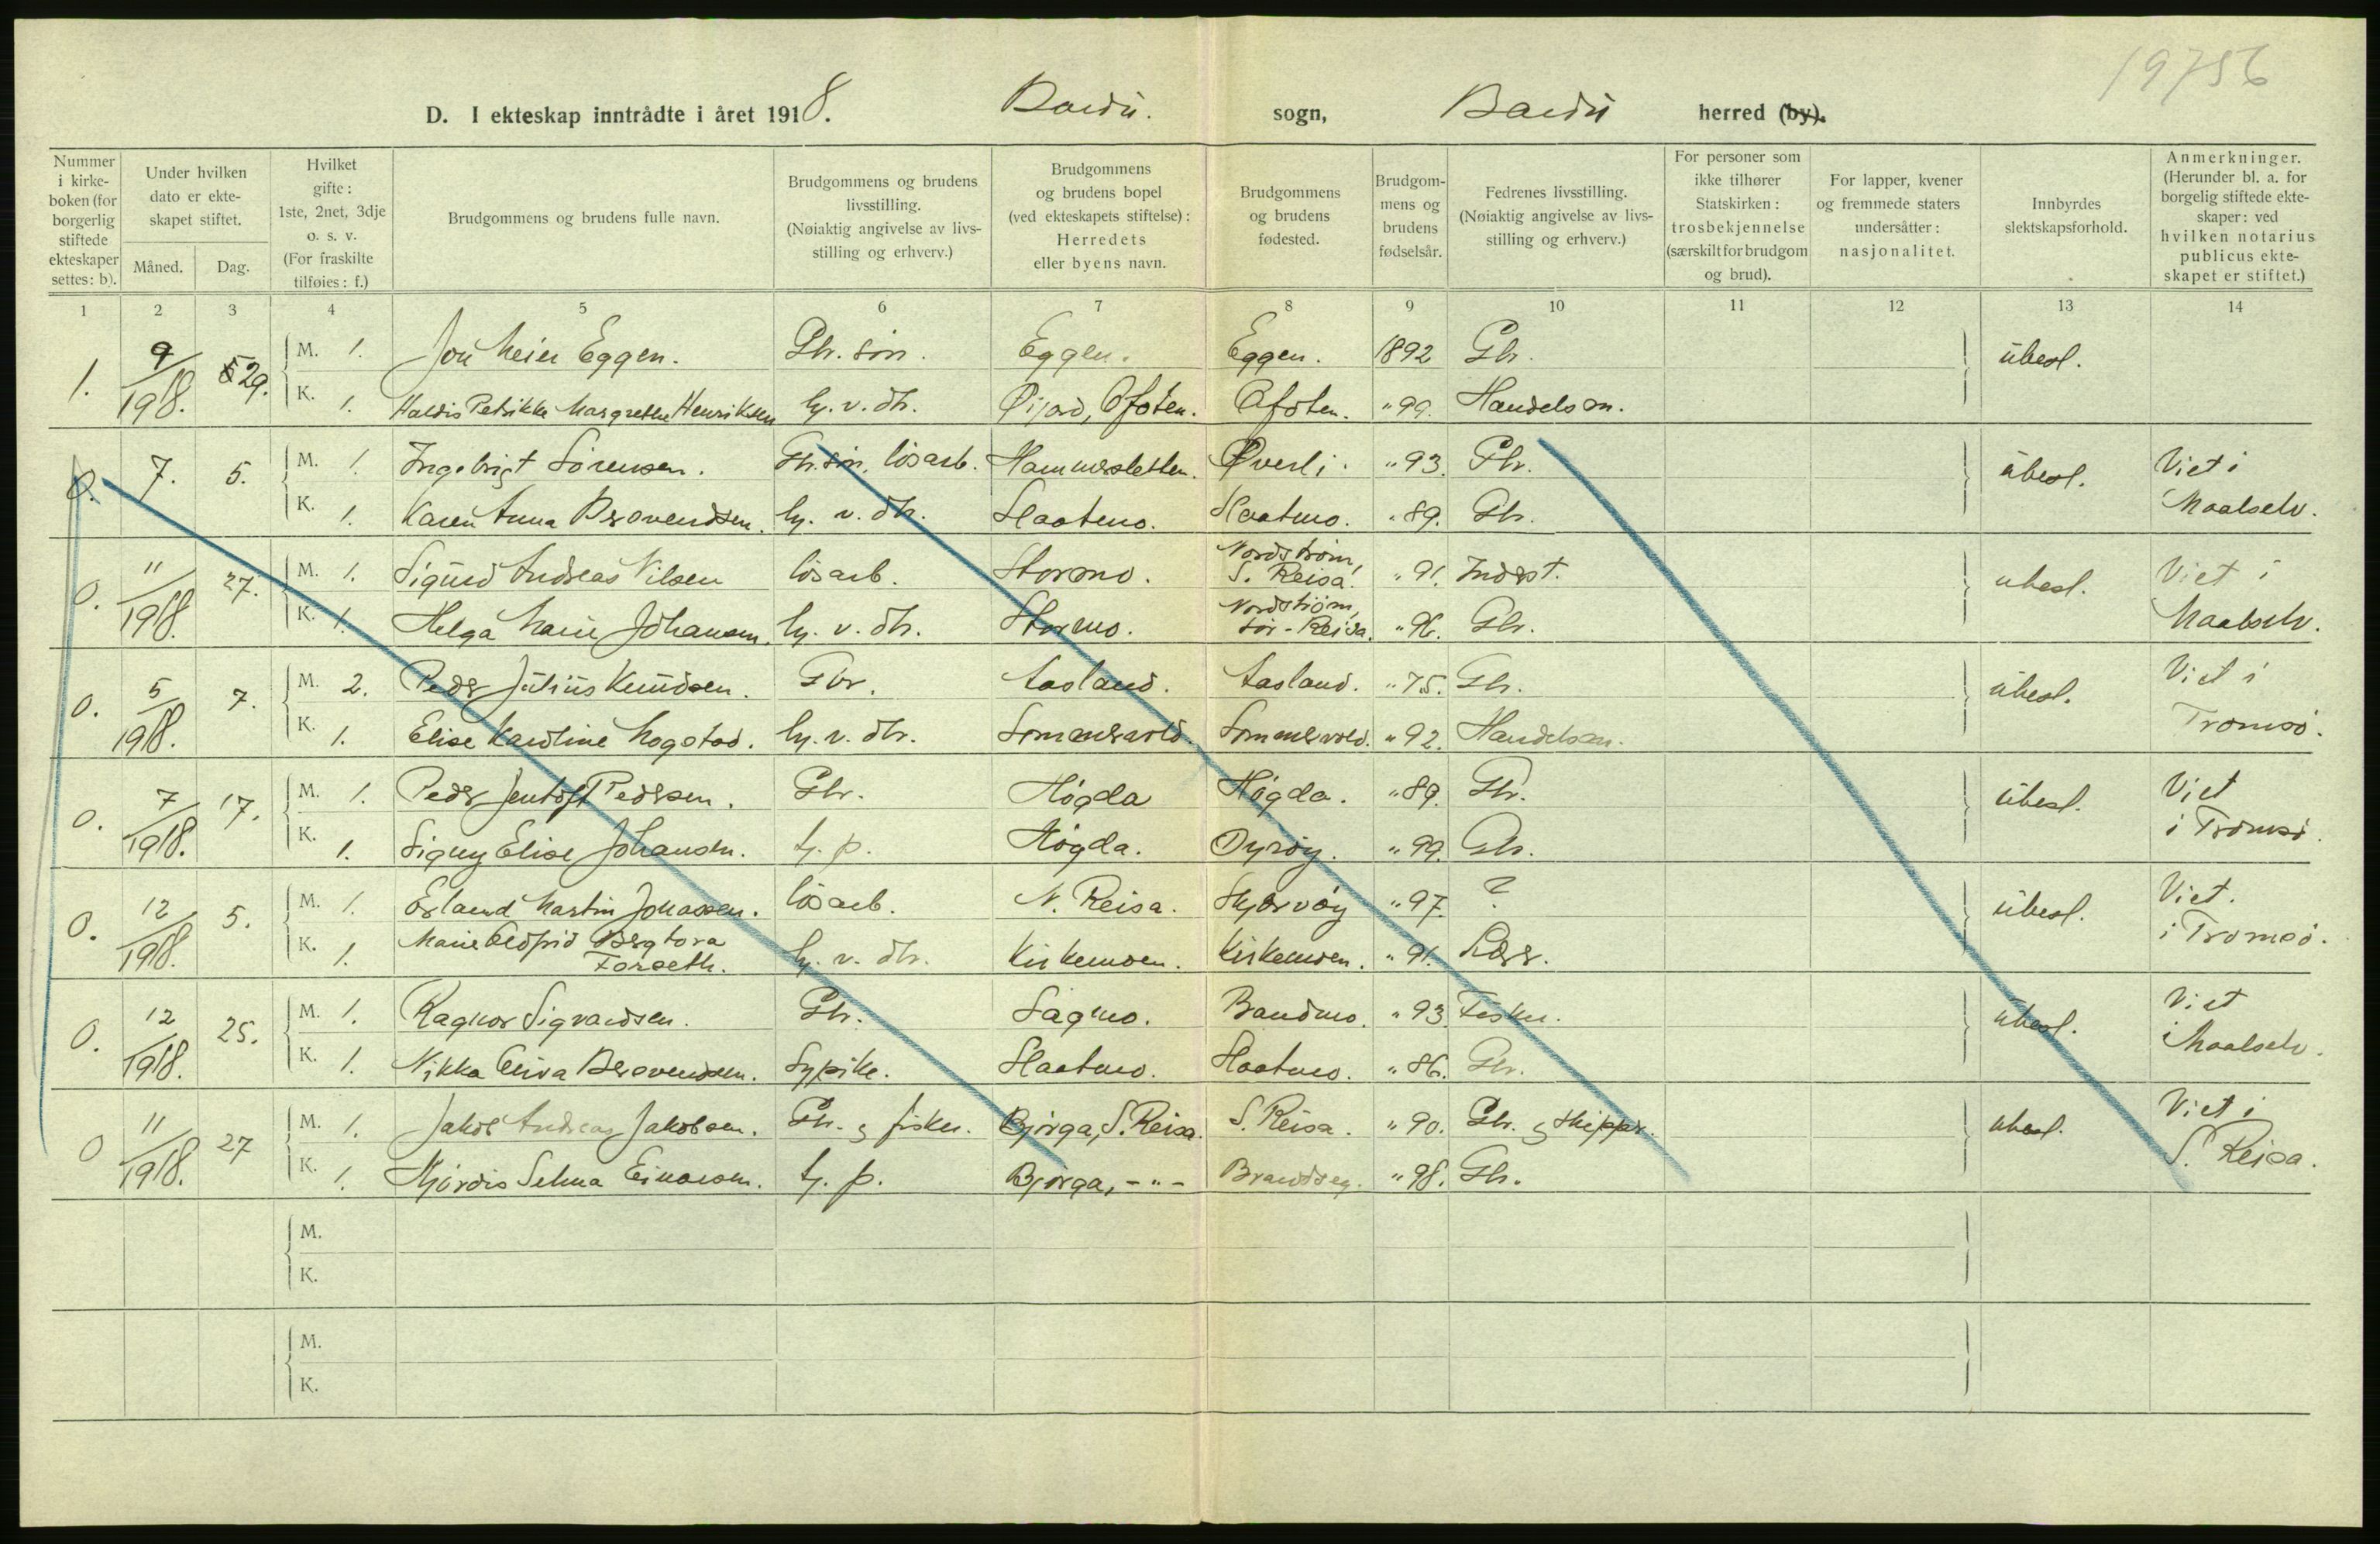 19756
D. I ekteskap inntrådte i året 1918. Bardu. sogn, Bardu herred (by).
Nummer i kirkeboken (for borgerlig stiftede ekteskaper settes: b).
Under hvilken dato er ekteskapet stiftet.
Måned. Dag.
Hvilket gifte: 1ste, 2net, 3dje o. s. v. (For fraskilte tilføies: f.)
Brudgommens og brudens fulle navn.
Brudgommens og brudens livsstilling. (Nøiaktig angivelse av livsstilling og erhverv.)
Brudgommens og brudens bopel (ved ekteskapets stiftelse): Herredets eller byens navn.
Brudgommens og brudens fødested.
Brudgommens og brudens fødselsår.
Fedrenes livsstilling. (Nøiaktig angivelse av livsstilling og erhverv.)
For personer som ikke tilhører Statskirken: trosbekjennelse (særskilt for brudgom og brud).
For lapper, kvener og fremmede staters undersåtter: nasjonalitet.
Innbyrdes slektskapsforhold.
Anmerkninger. (Herunder bl. a. for borgelig stiftede ekteskaper: ved hvilken notarius publicus ekteskapet er stiftet.)
1 2 3 4 5 6 7 8 9 10 11 12 13 14
1. 9/1918. 29. M. 1. Jon Meier Eggen. Gbr. sön. Eggen. Eggen. 1892 Gbr. übesl.
K. 1. Haldis Petrikke Margrethe Henriksen hj. v. dtr. Øijord, Ofoten. Ofoten. "99. Handelsm.
0. 7. 5. M. 1. Ingebrigt Sörensen. Gbr. sön, lösarb. Hammersletten. Øverli. "93. Gbr. übesl. Viet i
K. 1. Karen Anna Brovendsen. hj. v. dtr. Slaatmo. Slaatmo. "89. Gbr. Maalselv.
0. 11/1918. 27. M. 1. Sigurd Andreas Nilsen lösarb. Stormo. Nordström, S. Reisa. "91. Inderst. ubesl. Viet i
K. 1. Helga Marie Johansen. hj. v. dtr. Stormo. Nordström, Sör-Reisa. "96. Gbr. Maalselv.
0. 5/1918. 7. M. 2. Peder Julius Knudsen. Gbr. Aasland. Aasland. "75. Gbr. übesl. Viet i
K. 1. Elise Karoline Mogstad. hj. v. dtr. Sommervold. Sommervold. "92. Handelsm. Tromsö.
0. 7/1918. 17. M. 1. Peder Jentoft Pedersen. Gbr. Högda Högda. "89. Gbr. übesl. Viet
K. 1. Signy Elise Johansen. tj. p. Högda. Dyröy. "99. Gbr. i Tromsö.
0. 12/1918. 5. M. 1. Erland Martin Johassen. lösarb. N. Reisa. Skjervöy "97. ? übesl. Viet.
K. 1. Marie Bergtora Forseth. hj. v. dtr. Kirkemoen. Kirkemoen. "91. Lærer. i Tromsö.
0. 12/1918. 25. M. 1. Ragnar Sigvardsen. Gbr. Sagmo. Brandmo. "93. Fisker. übesl. Viet
K. 1. Nikka Brovendsen. Sypike. Slaatmo. Slaatmo. "86. Gbr. i Maalselv.
0 11/1918. 27 M. 1. Jakob Andreas Jakobsen. Gbr. & fisker. Björga, S. Reisa. S. Reisa. "90. Gbr. & skipper. ubesl. Viet i
K. 1. Hjördis Selma Einarsen. tj. p. Björga, -"- "98. Gbr. S. Reisa.
M.
K.
M.
K.